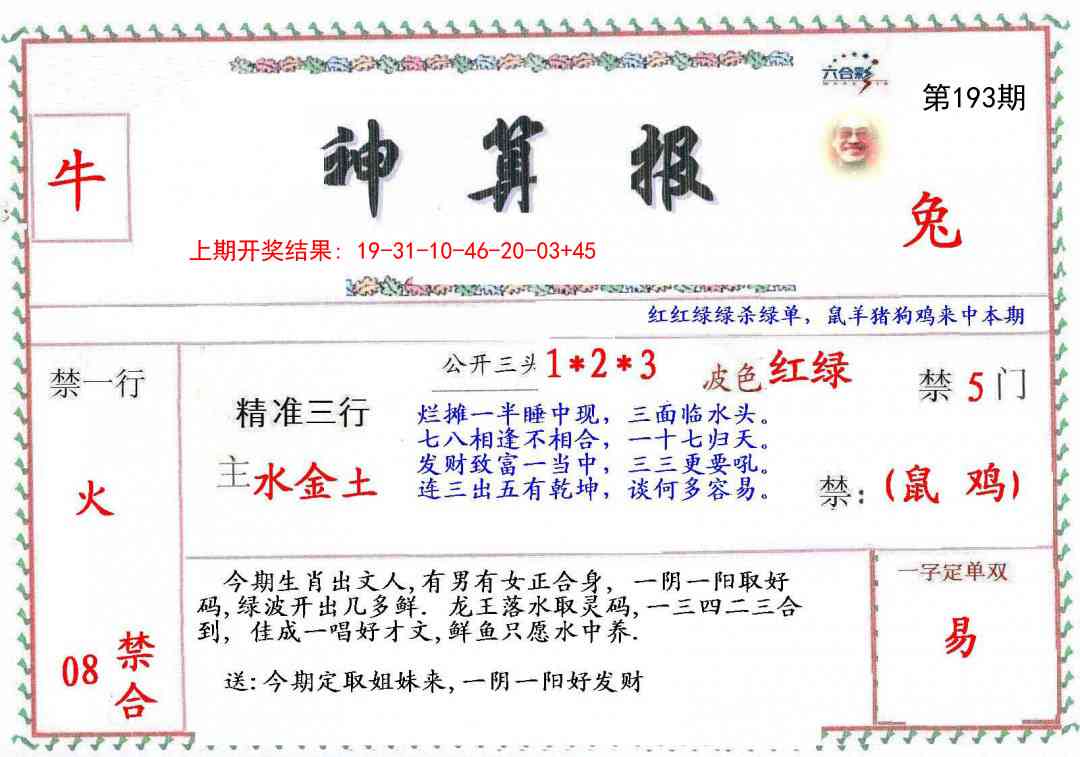 六合彩
第193期
神算报
牛
兔
上期开奖结果: 19-31-10-46-20-03+45
红红绿绿杀绿单，鼠羊猪狗鸡来中本期
禁一行
公开三头 1*2*3
波色 红绿
禁 5 门
精准三行
烂摊一半睡中现，三面临水头。
七八相逢不相合，一十七归天。
发财致富一当中，三三更要吼。
连三出五有乾坤，谈何多容易。
主 水金土
火
禁:(鼠 鸡)
今期生肖出文人,有男有女正合身, 一阴一阳取好
码,绿波开出几多鲜. 龙王落水取灵码,一三四二三合
到, 佳成一唱好才文,鲜鱼只愿水中养.
送:今期定取姐妹来,一阴一阳好发财
一字定单双
易
08 禁合